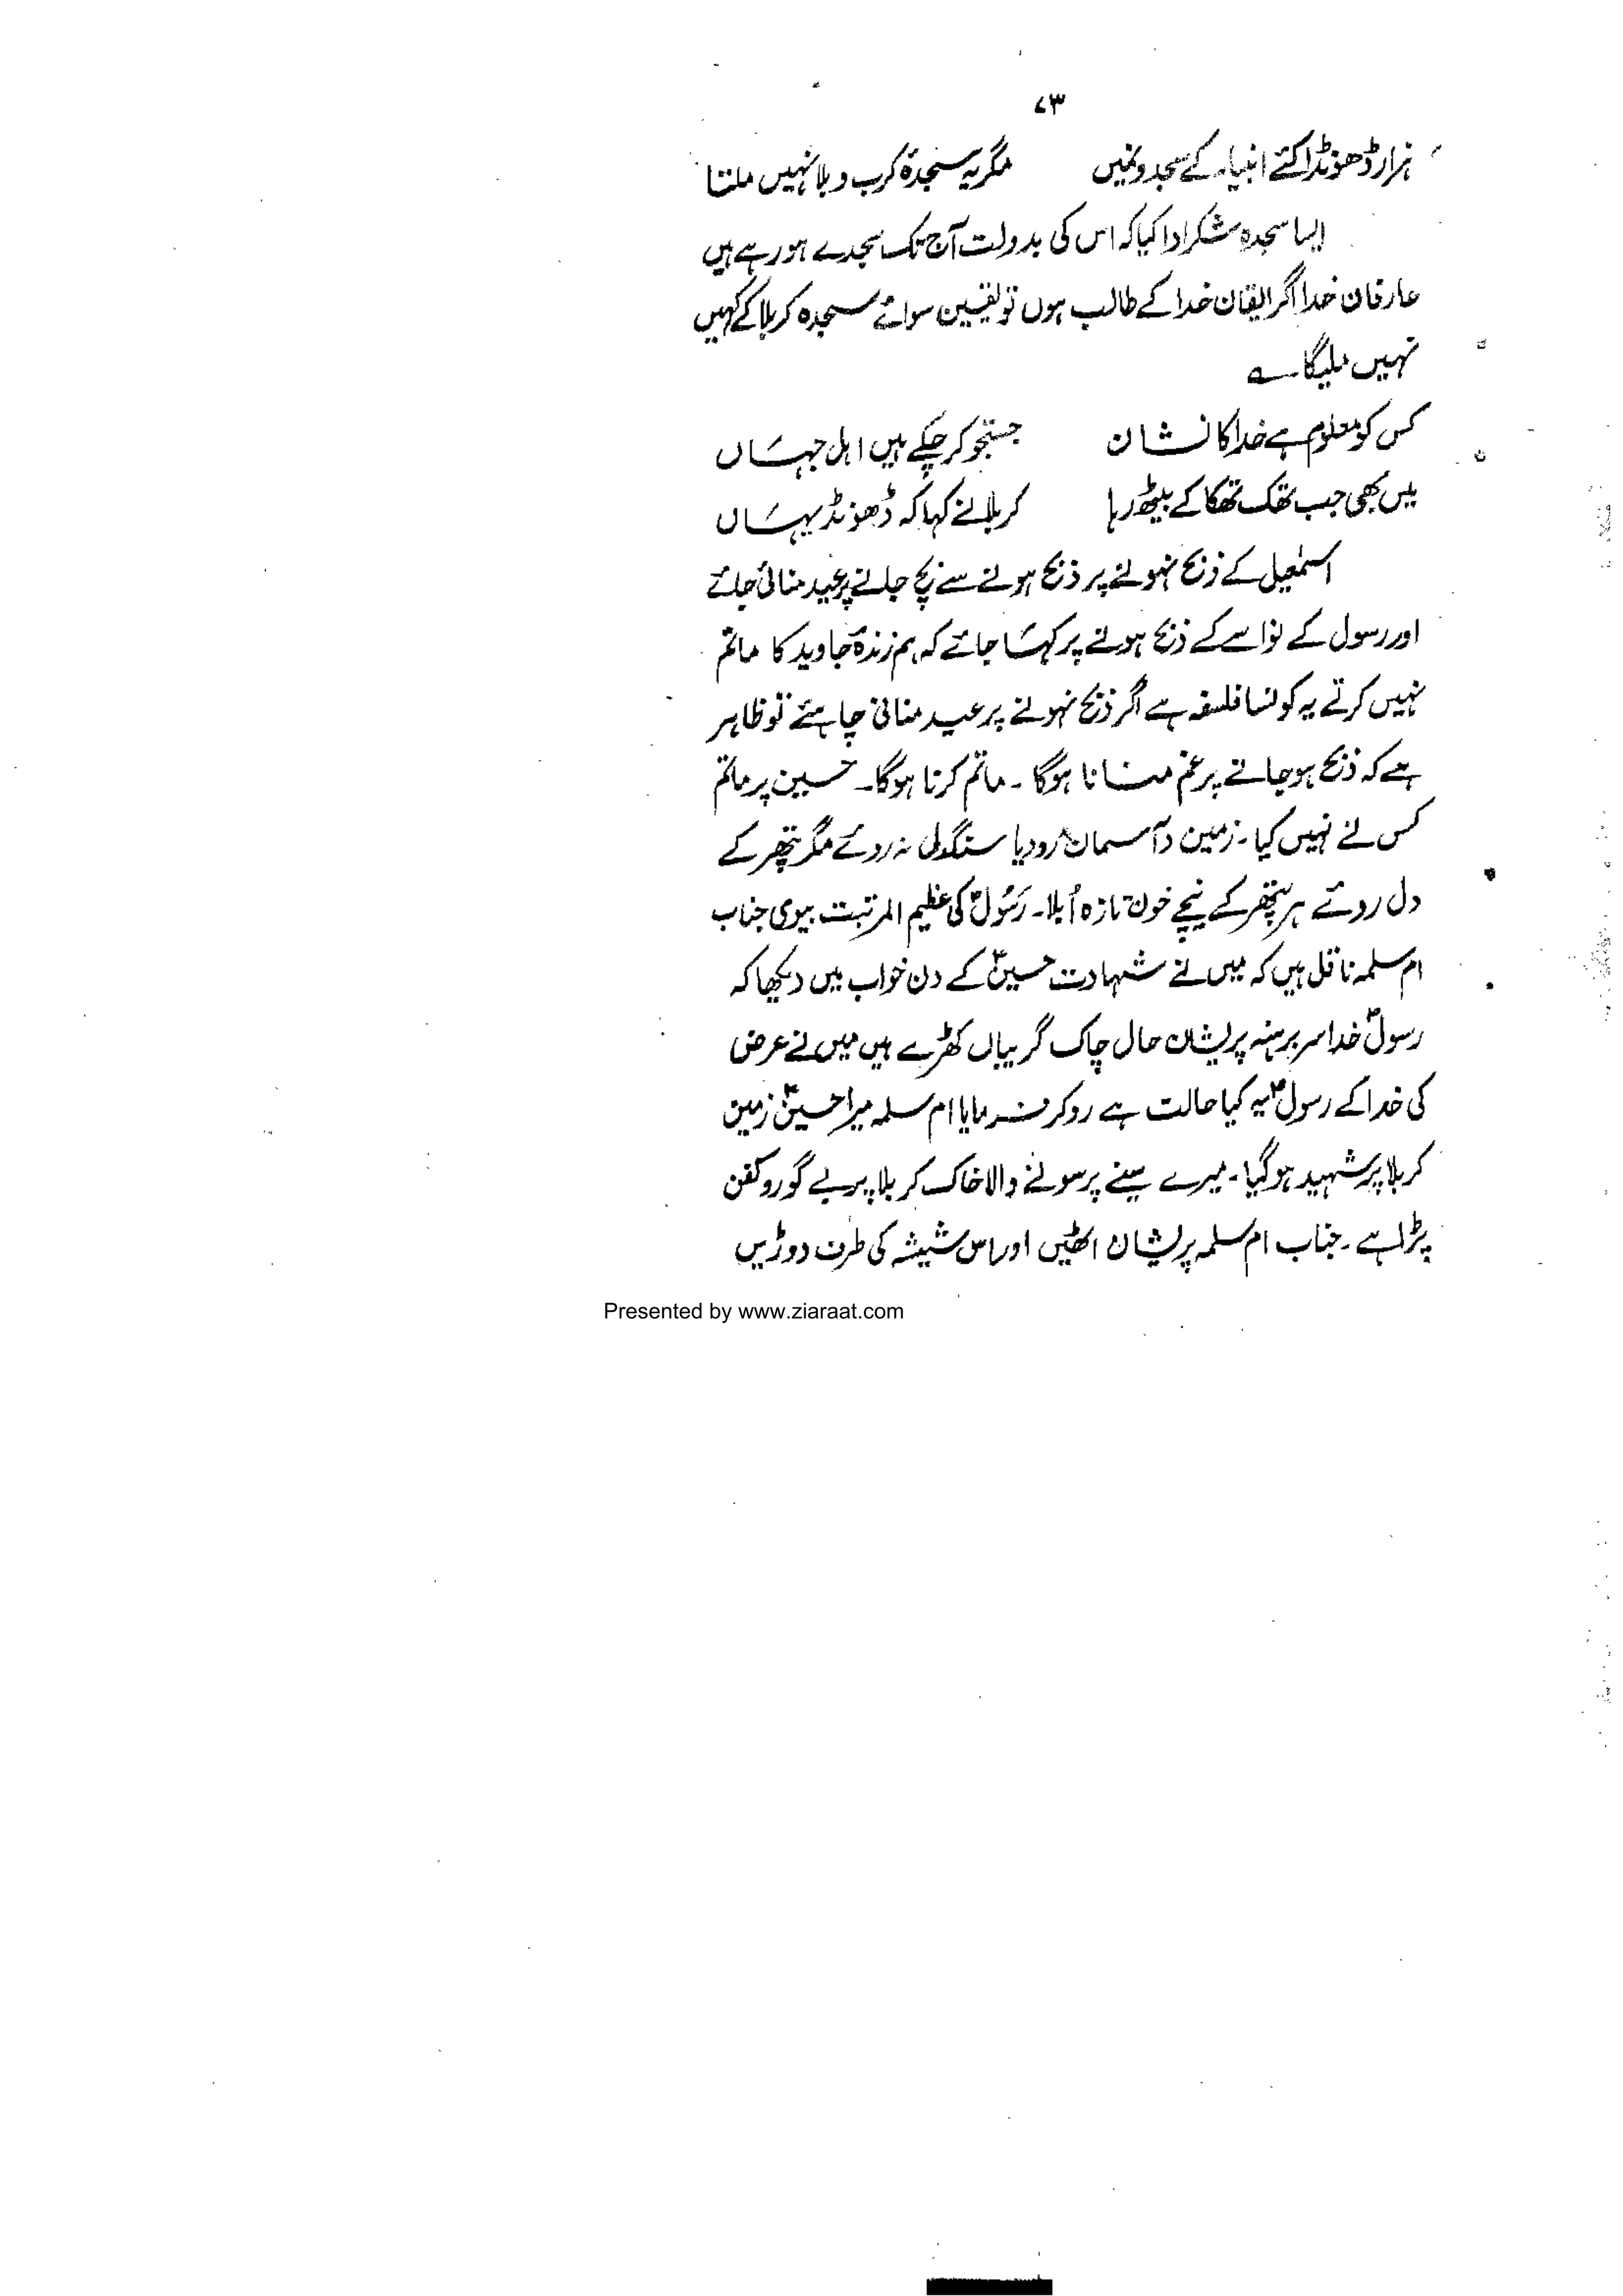 ۷۳
ہزار ڈھونڈا کئے انبیاء کے سجدونمیں مگر یہ سجدۂ کرب و بلا نہیں ملتا
ایسا سجدہ شکر ادا کیا کہ اس کی بدولت آج تک سجدے ہو رہے ہیں
عارفان خدا اگر ایقان خدا کے طالب ہوں تو یقین سوائے سجدہ کربلا کے کہیں
نہیں ملیگا ؎
کس کو معلوم ہے خدا کا نشان جستجو کر چکے ہیں اہل جہاں
میں بھی جب تھک تھکا کے بیٹھ رہا کربلا نے کہا کہ ڈھونڈ یہاں
اسمٰعیل کے ذبح نہونے پر ذبح ہونے سے بچ جانے پر عید منائی جائے
اور رسول کے نواسے کے ذبح ہونے پر کہا جائے کہ ہم زندۂ جاوید کا ماتم
نہیں کرتے یہ کونسا فلسفہ ہے اگر ذبح نہونے پر عید منانی چاہئے تو ظاہر
ہے کہ ذبح ہو جانے پر غم منانا ہوگا ۔ ماتم کرنا ہوگا۔ حسین پر ماتم
کس نے نہیں کیا ۔ زمین و آسمان رو دیا سنگدل نہ روئے مگر پتھر کے
دل روئے ہر پتھر کے نیچے خون تازہ اُبلا ۔ رَسُولؐ کی عظیم المرتبت بیوی جناب
ام سلمہ ناقل ہیں کہ میں نے شہادت حسینؑ کے دن خواب میں دیکھا کہ
رسولؐ خدا سر برہنہ پریشان حال چاک گریباں کھڑے ہیں میں نے عرض
کی خدا کے رسولؐ یہ کیا حالت ہے رو کر فرمایا ام سلمہ میرا حسینؑ زمین
کربلا پر شہید ہوگیا ۔ میرے سینے پر سونے والا خاک کربلا پر بے گور و کفن
پڑا ہے ۔ جناب ام سلمہ پریشان اٹھیں اور اس شیشہ کی طرف دوڑیں
Presented by www.ziaraat.com